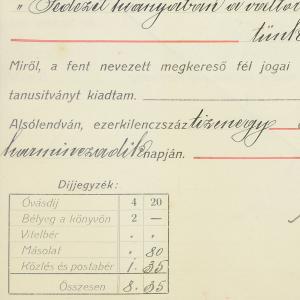 „Fedezet hiányában a váltó
tünk
Miről, a fent nevezett megkereső fél jogai
tanusitványt kiadtam.
Alsólendván, ezerkilenczszáz tizenegy
harminczadik napján.
Díjjegyzék:
Óvásdíj 4 20
Bélyeg a könyvön 2 —
Vitelbér . .
Másolat . 80
Közlés és postabér 1 . 35
Összesen 8 . 35